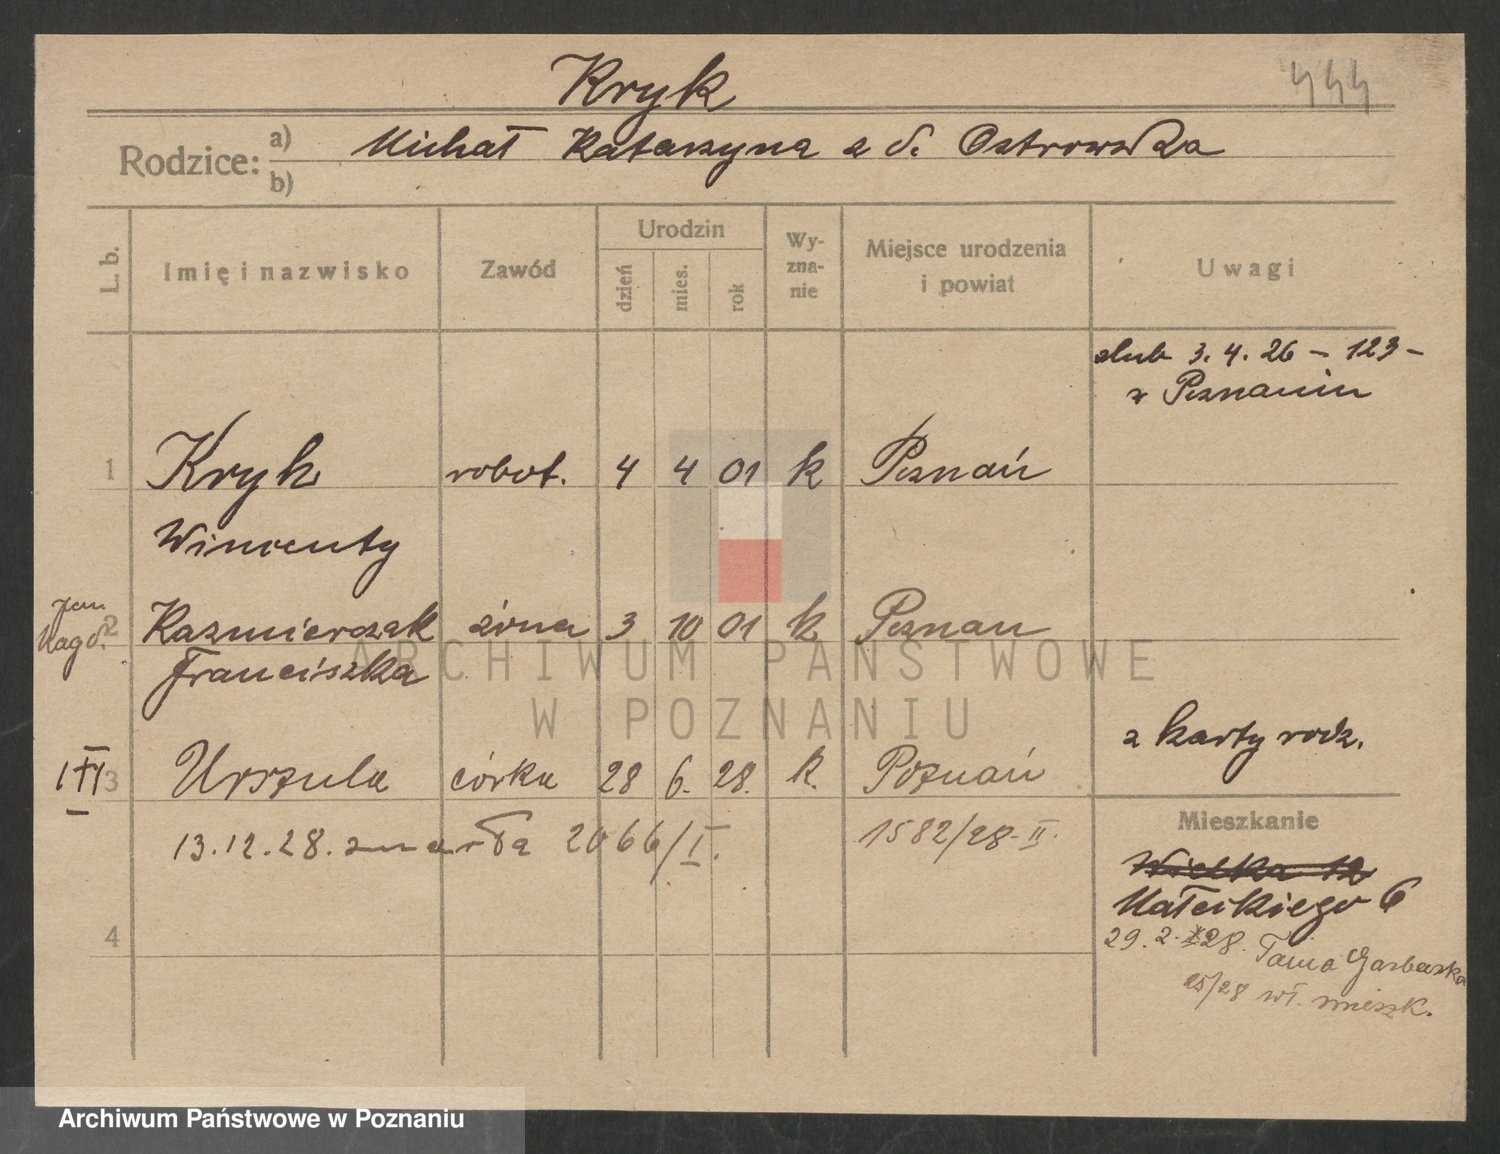 Kryk
444
Rodzice: a) Michał Katarzyna z d. Ostrowska
b)
L. b.
Imię i nazwisko
Zawód
Urodzin
dzień
mies.
rok
Wy-
zna-
nie
Miejsce urodzenia
i powiat
Uwagi
ślub 3. 4. 26 – 123 –
w Poznaniu
1 Kryk robot. 4 4 01 k Poznań
Wincenty
Jan
Magd.
2 Kazmierczak żona 3 10 01 k Poznań
Franciszka
ARCHIWUM PAŃSTWOWE
W POZNANIU
z karty rodz.
3 Urszula córka 28 6. 28. k. Poznań
13.12.28. zmarła 2066/I. 1582/28-II.
Mieszkanie
Wielka 12
Małeckiego 6
4
29. 2. 28. Tama Garbarska
25/28 wł. mieszk.
Archiwum Państwowe w Poznaniu